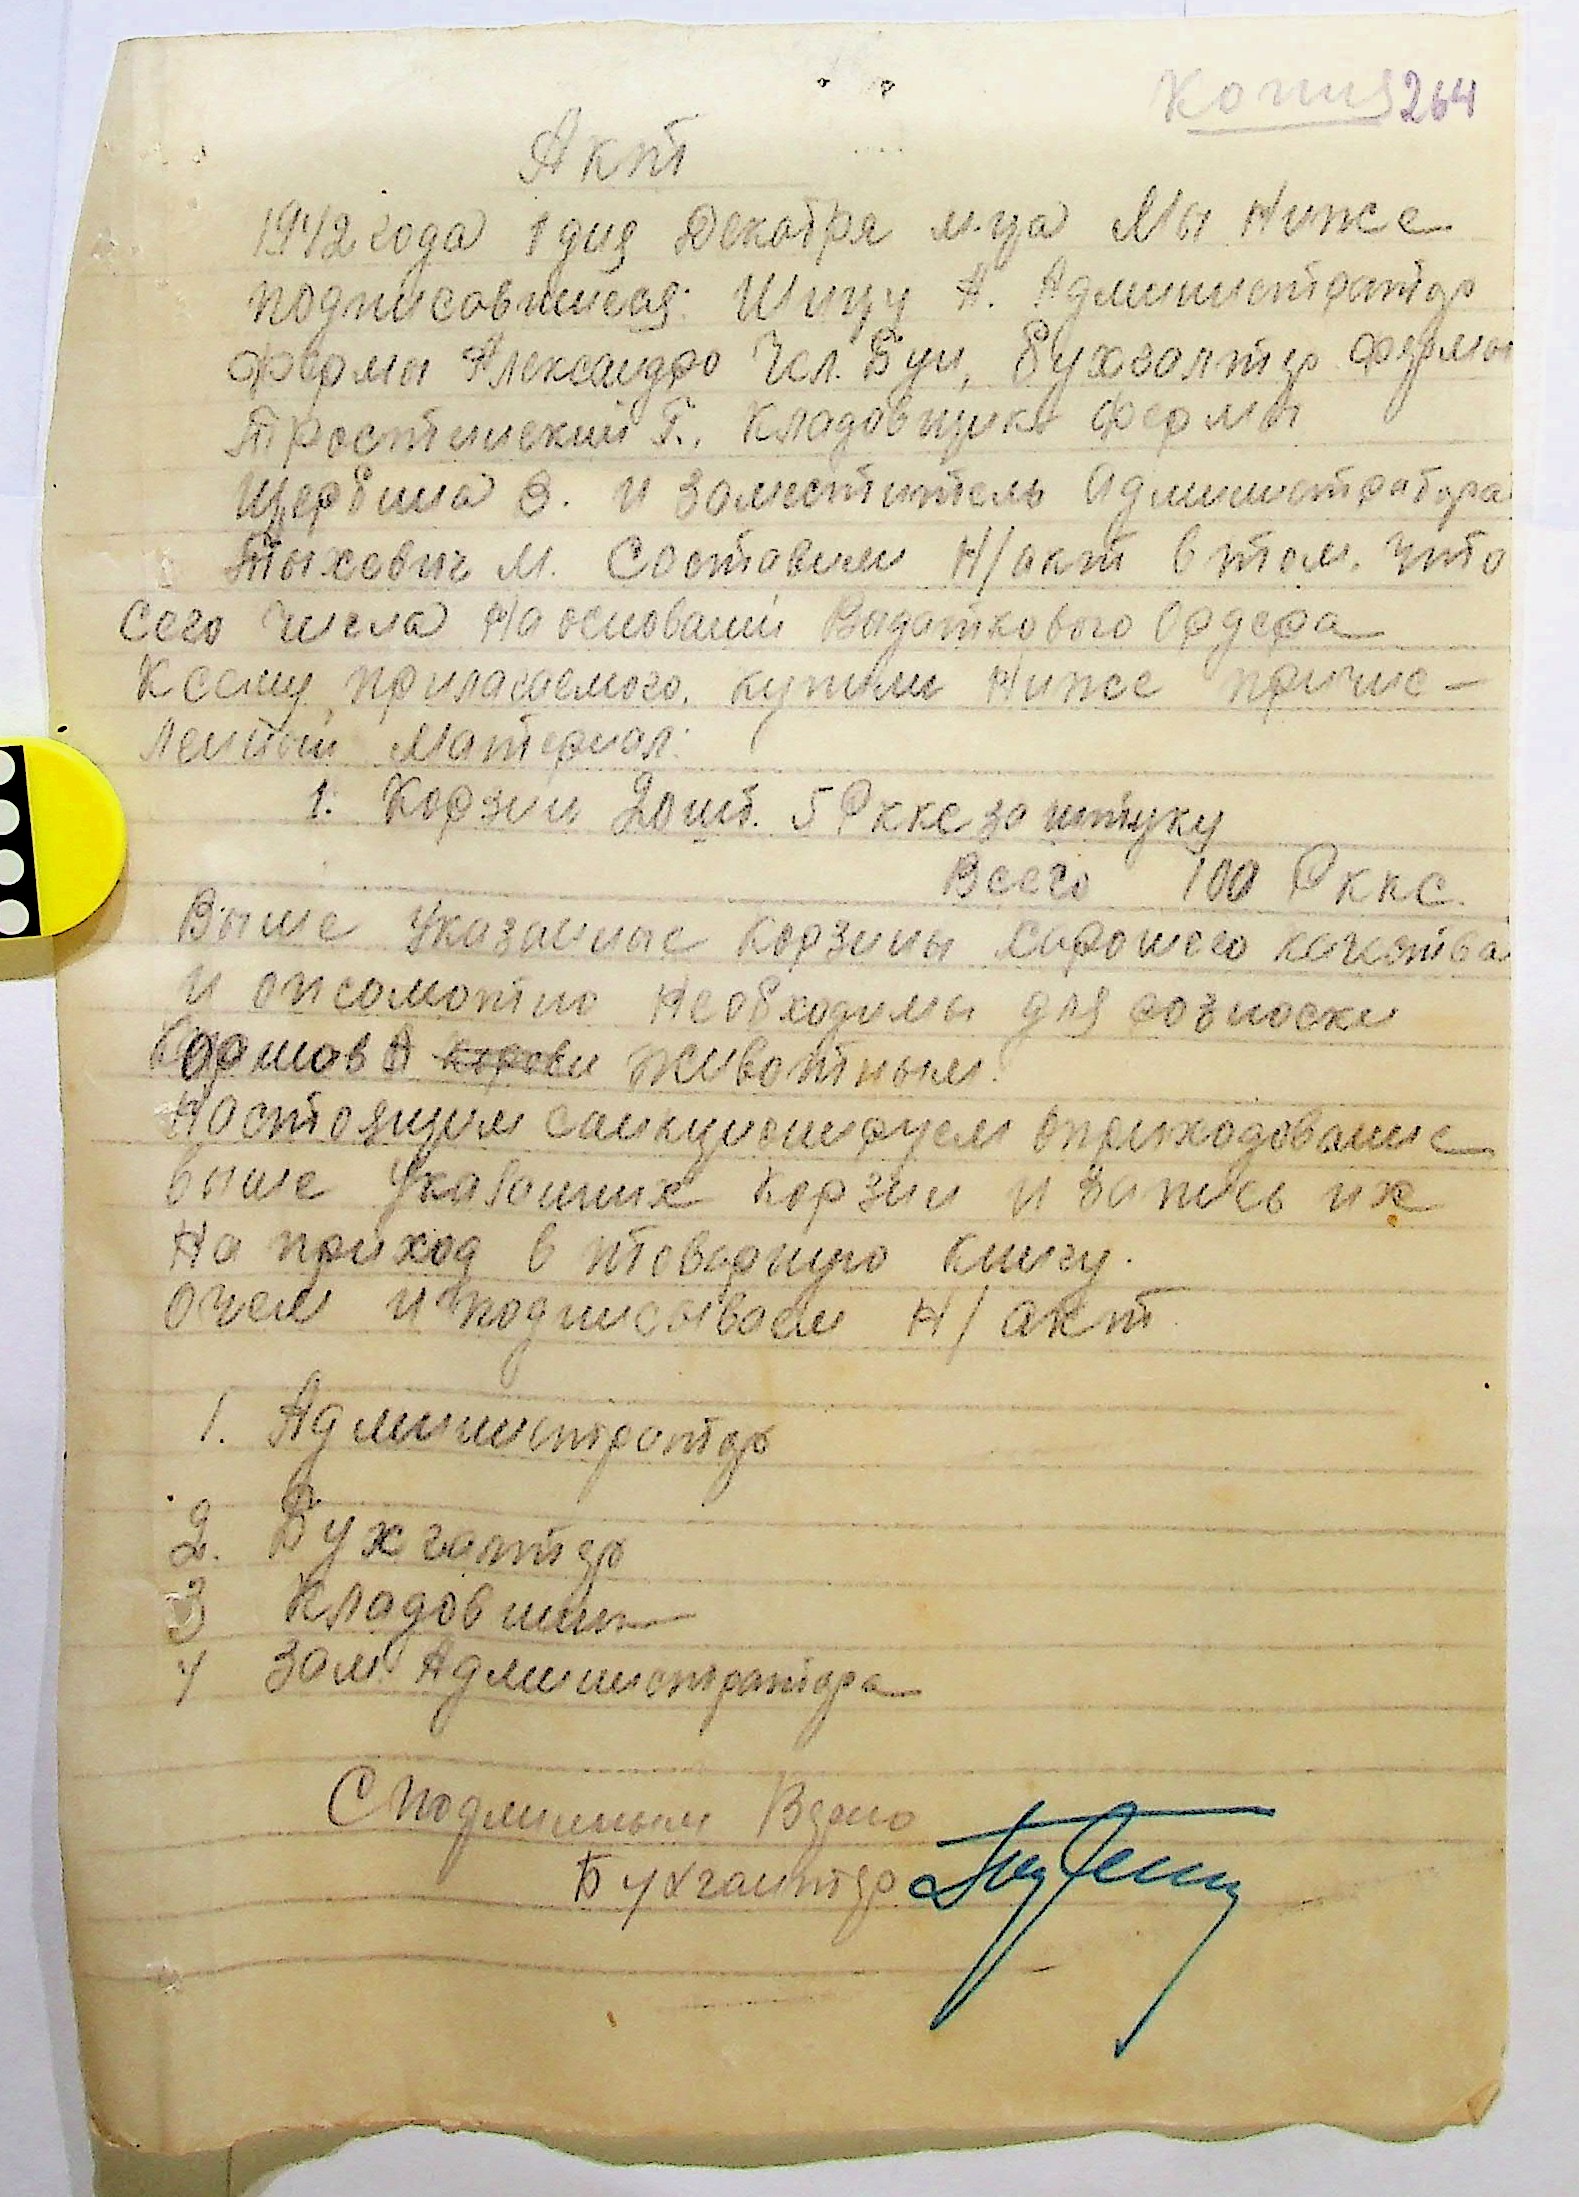 Копия 264
Акт
1942 года 1 дня Декабря м-ца Мы Ниже
подписовшиеся: Шицу А. Администратор
фермы Александро Чел. Буи, Бухгалтер фермы
Тростинский Г., Кладовщик фермы
Щербина З. и Заместитель Администратора
Тыхович М. Составили Н/акт в том, что
Сего числа На основании Выдаткового Ордера
К сему прилагаемого, купили Ниже причис-
ленный Материал:
1. Корзин 20 шт. 5 Рккс за штуку
Всего 100 Рккс.
Выше Указанные Корзины хорошего качества
и опсомотно Необходимы для розноски
Кормов животным.
Настоящим санкционируем оприходование
выше Указанных Корзин и Запись их
На приход в товарную книгу.
О чем и подписываем Н/акт
1. Администратор
2. Бухгалтер
3 Кладовшик
4 Зам. Администратора
С Подлинным Верно
Бухгалтер